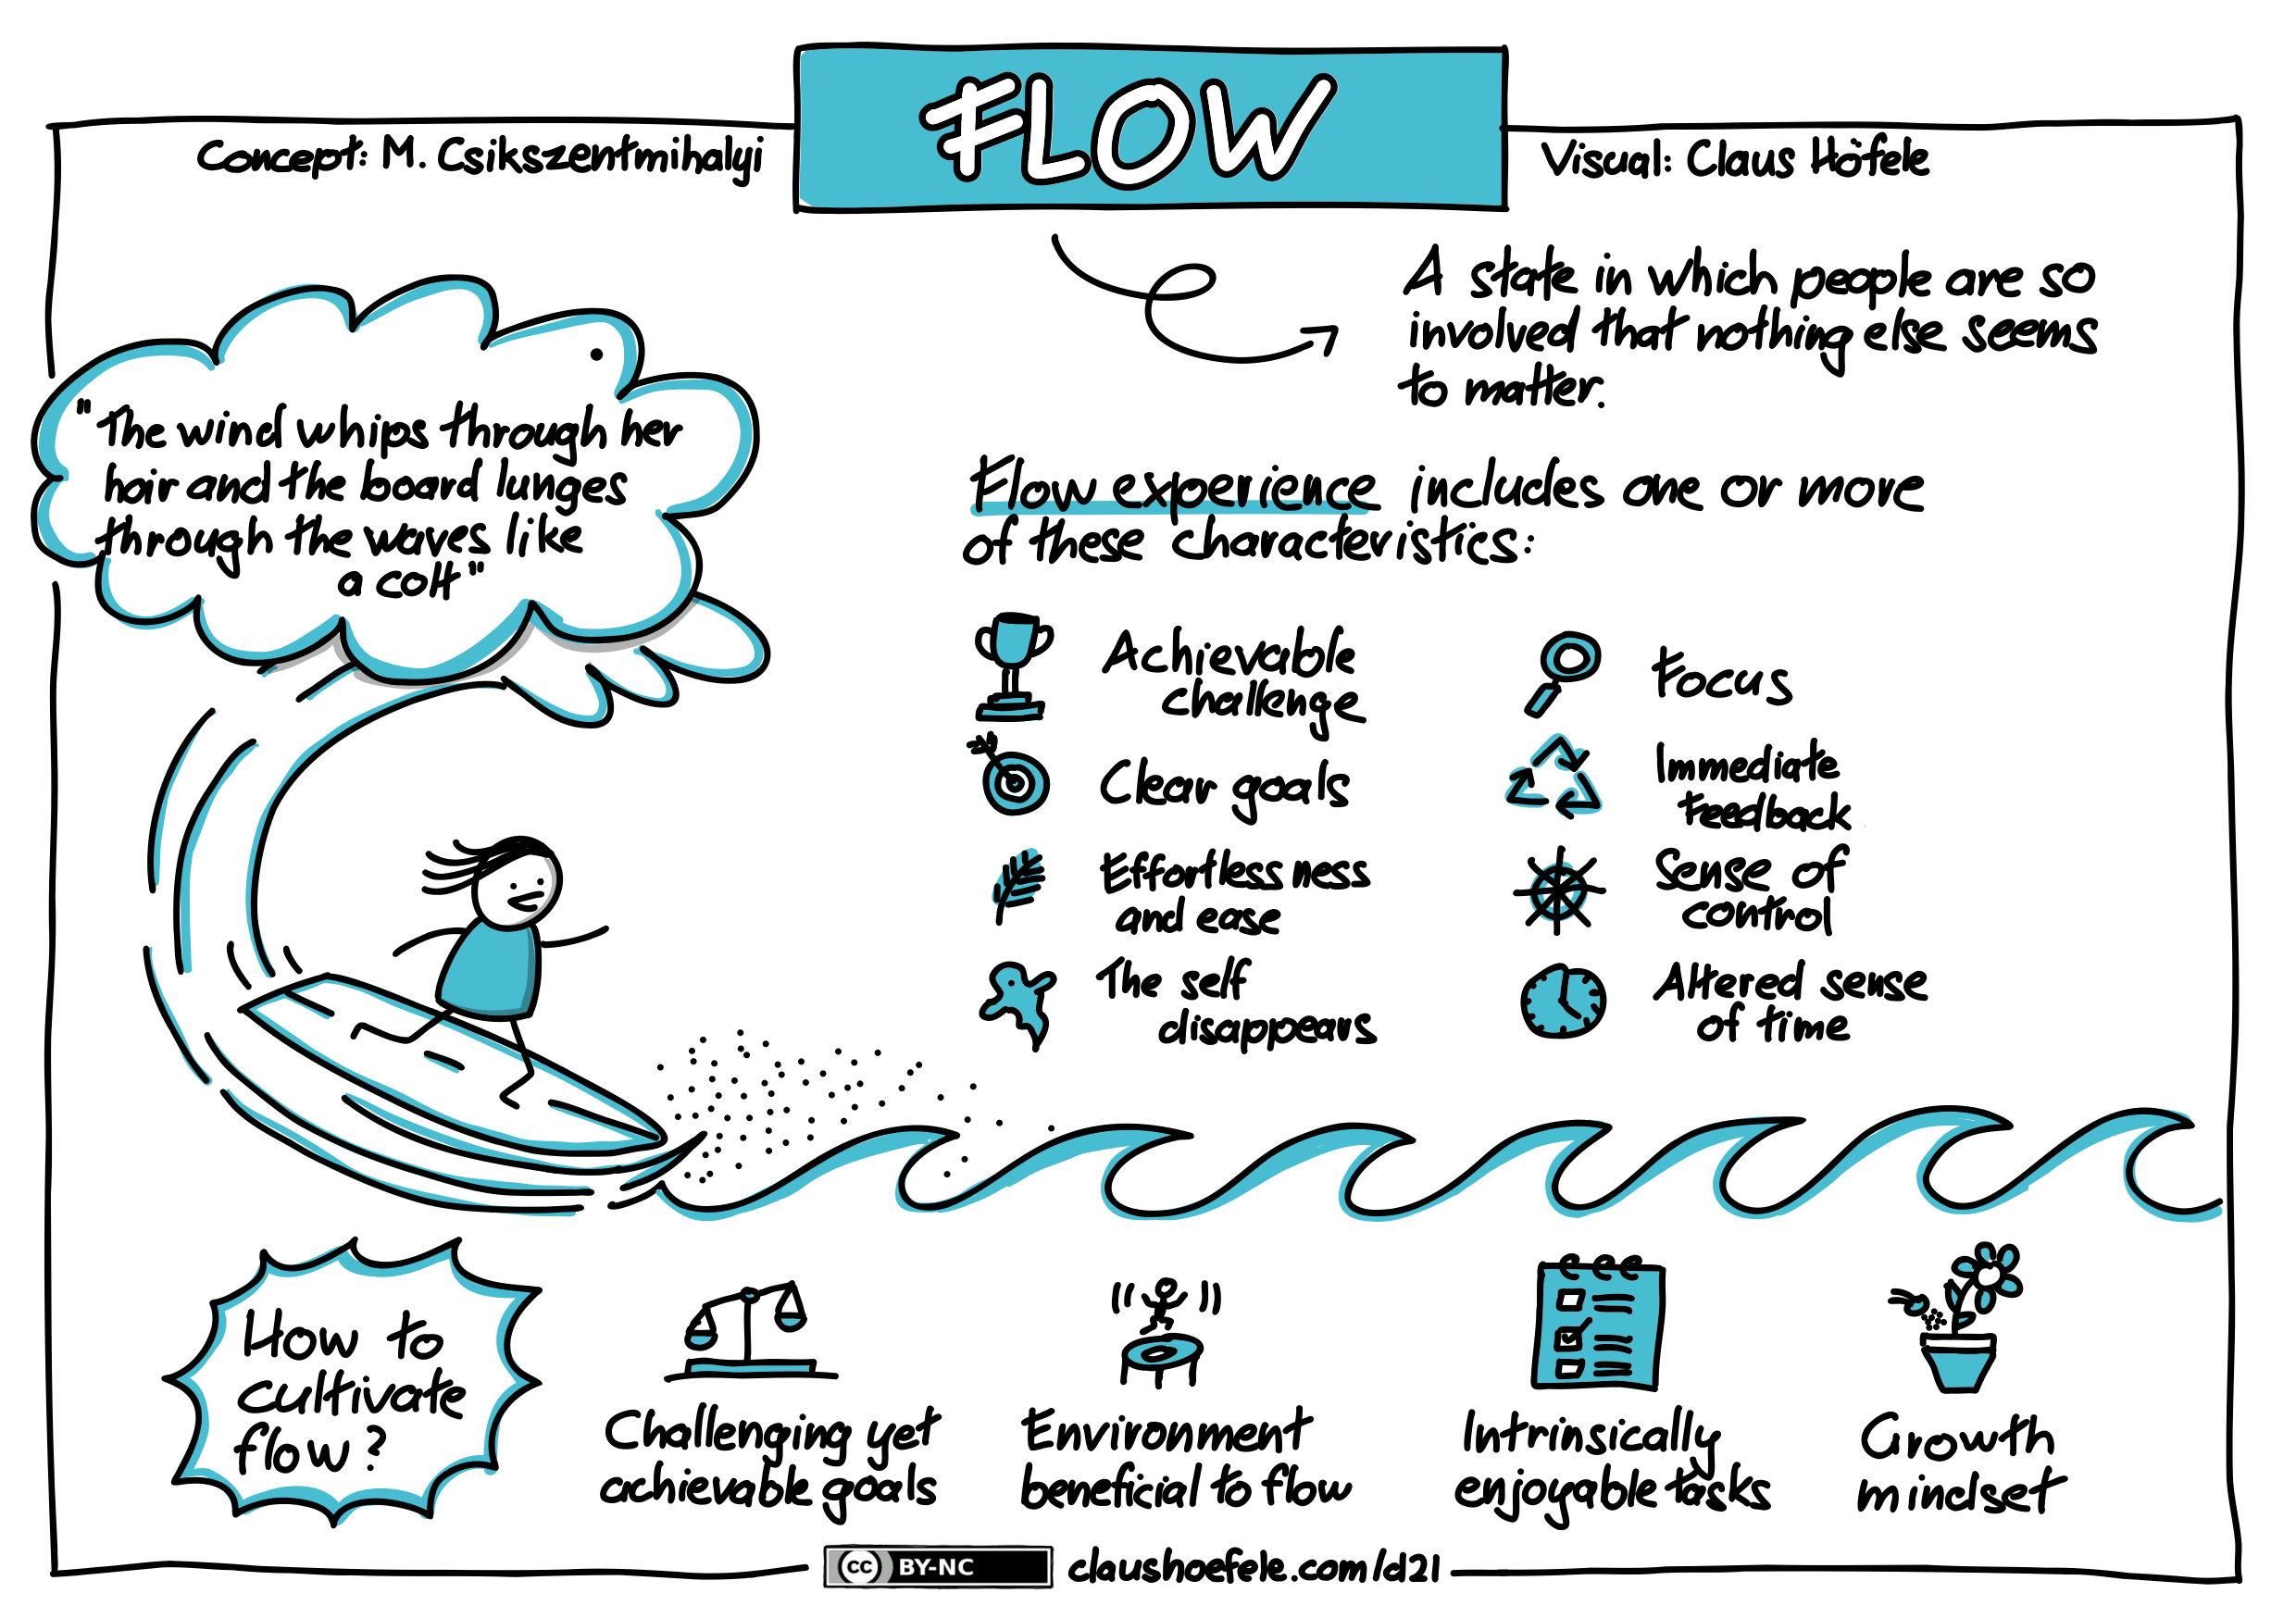 FLOW
Concept: M. Csikszentmihalyi
Visual: Claus Höfele
A state in which people are so
involved that nothing else seems
to matter.
"The wind whips through her
hair and the board lunges
through the waves like
a colt"
Flow experience includes one or more
of these characteristics:
Achievable
challenge
Focus
Clear goals
Immediate
feedback
Effortlessness
and ease
Sense of
control
The self
disappears
Altered sense
of time
How to
cultivate
flow?
Challenging yet
achievable goals
Environment
beneficial to flow
Intrinsically
enjoyable tasks
Growth
mindset
cc BY-NC
claushoefele.com/d21